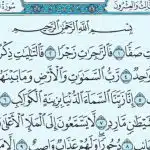 سُورَةُ
وَالْعِشْرُونَ
بِسْمِ ٱللَّهِ ٱلرَّحْمَٰنِ ٱلرَّحِيمِ
صَفًّا ١ فَٱلزَّٰجِرَٰتِ زَجْرًا ٢ فَٱلتَّٰلِيَٰتِ ذِكْرًا
رَّبُّ ٱلسَّمَٰوَٰتِ وَٱلْأَرْضِ وَمَا بَيْنَهُمَا
إِنَّا زَيَّنَّا ٱلسَّمَآءَ ٱلدُّنْيَا بِزِينَةٍ ٱلْكَوَاكِبِ ٦
شَيْطَٰنٍ مَّارِدٍ ٧ لَّا يَسَّمَّعُونَ إِلَى ٱلْمَلَإِ ٱلْأَعْلَىٰ
دُحُورًا وَلَهُمْ عَذَابٌ وَاصِبٌ